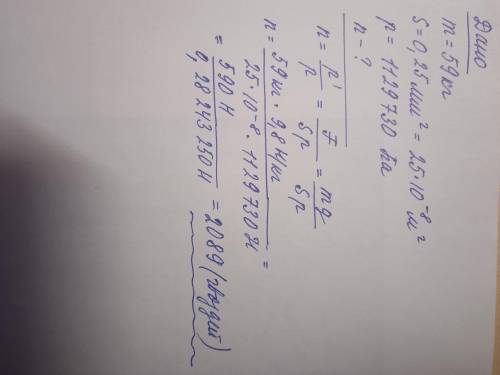 Дано
m = 59 кг
S = 0,25 мм² = 25·10⁻⁸ м²
p = 1129730 Па
n - ?
n = p'/p = F/Sp = mg/Sp
n = 59 кг · 9,8 Н/кг / 25·10⁻⁸ · 1129730 Н =
= 590 Н / 0,28243250 Н = 2089 (гвоздей)